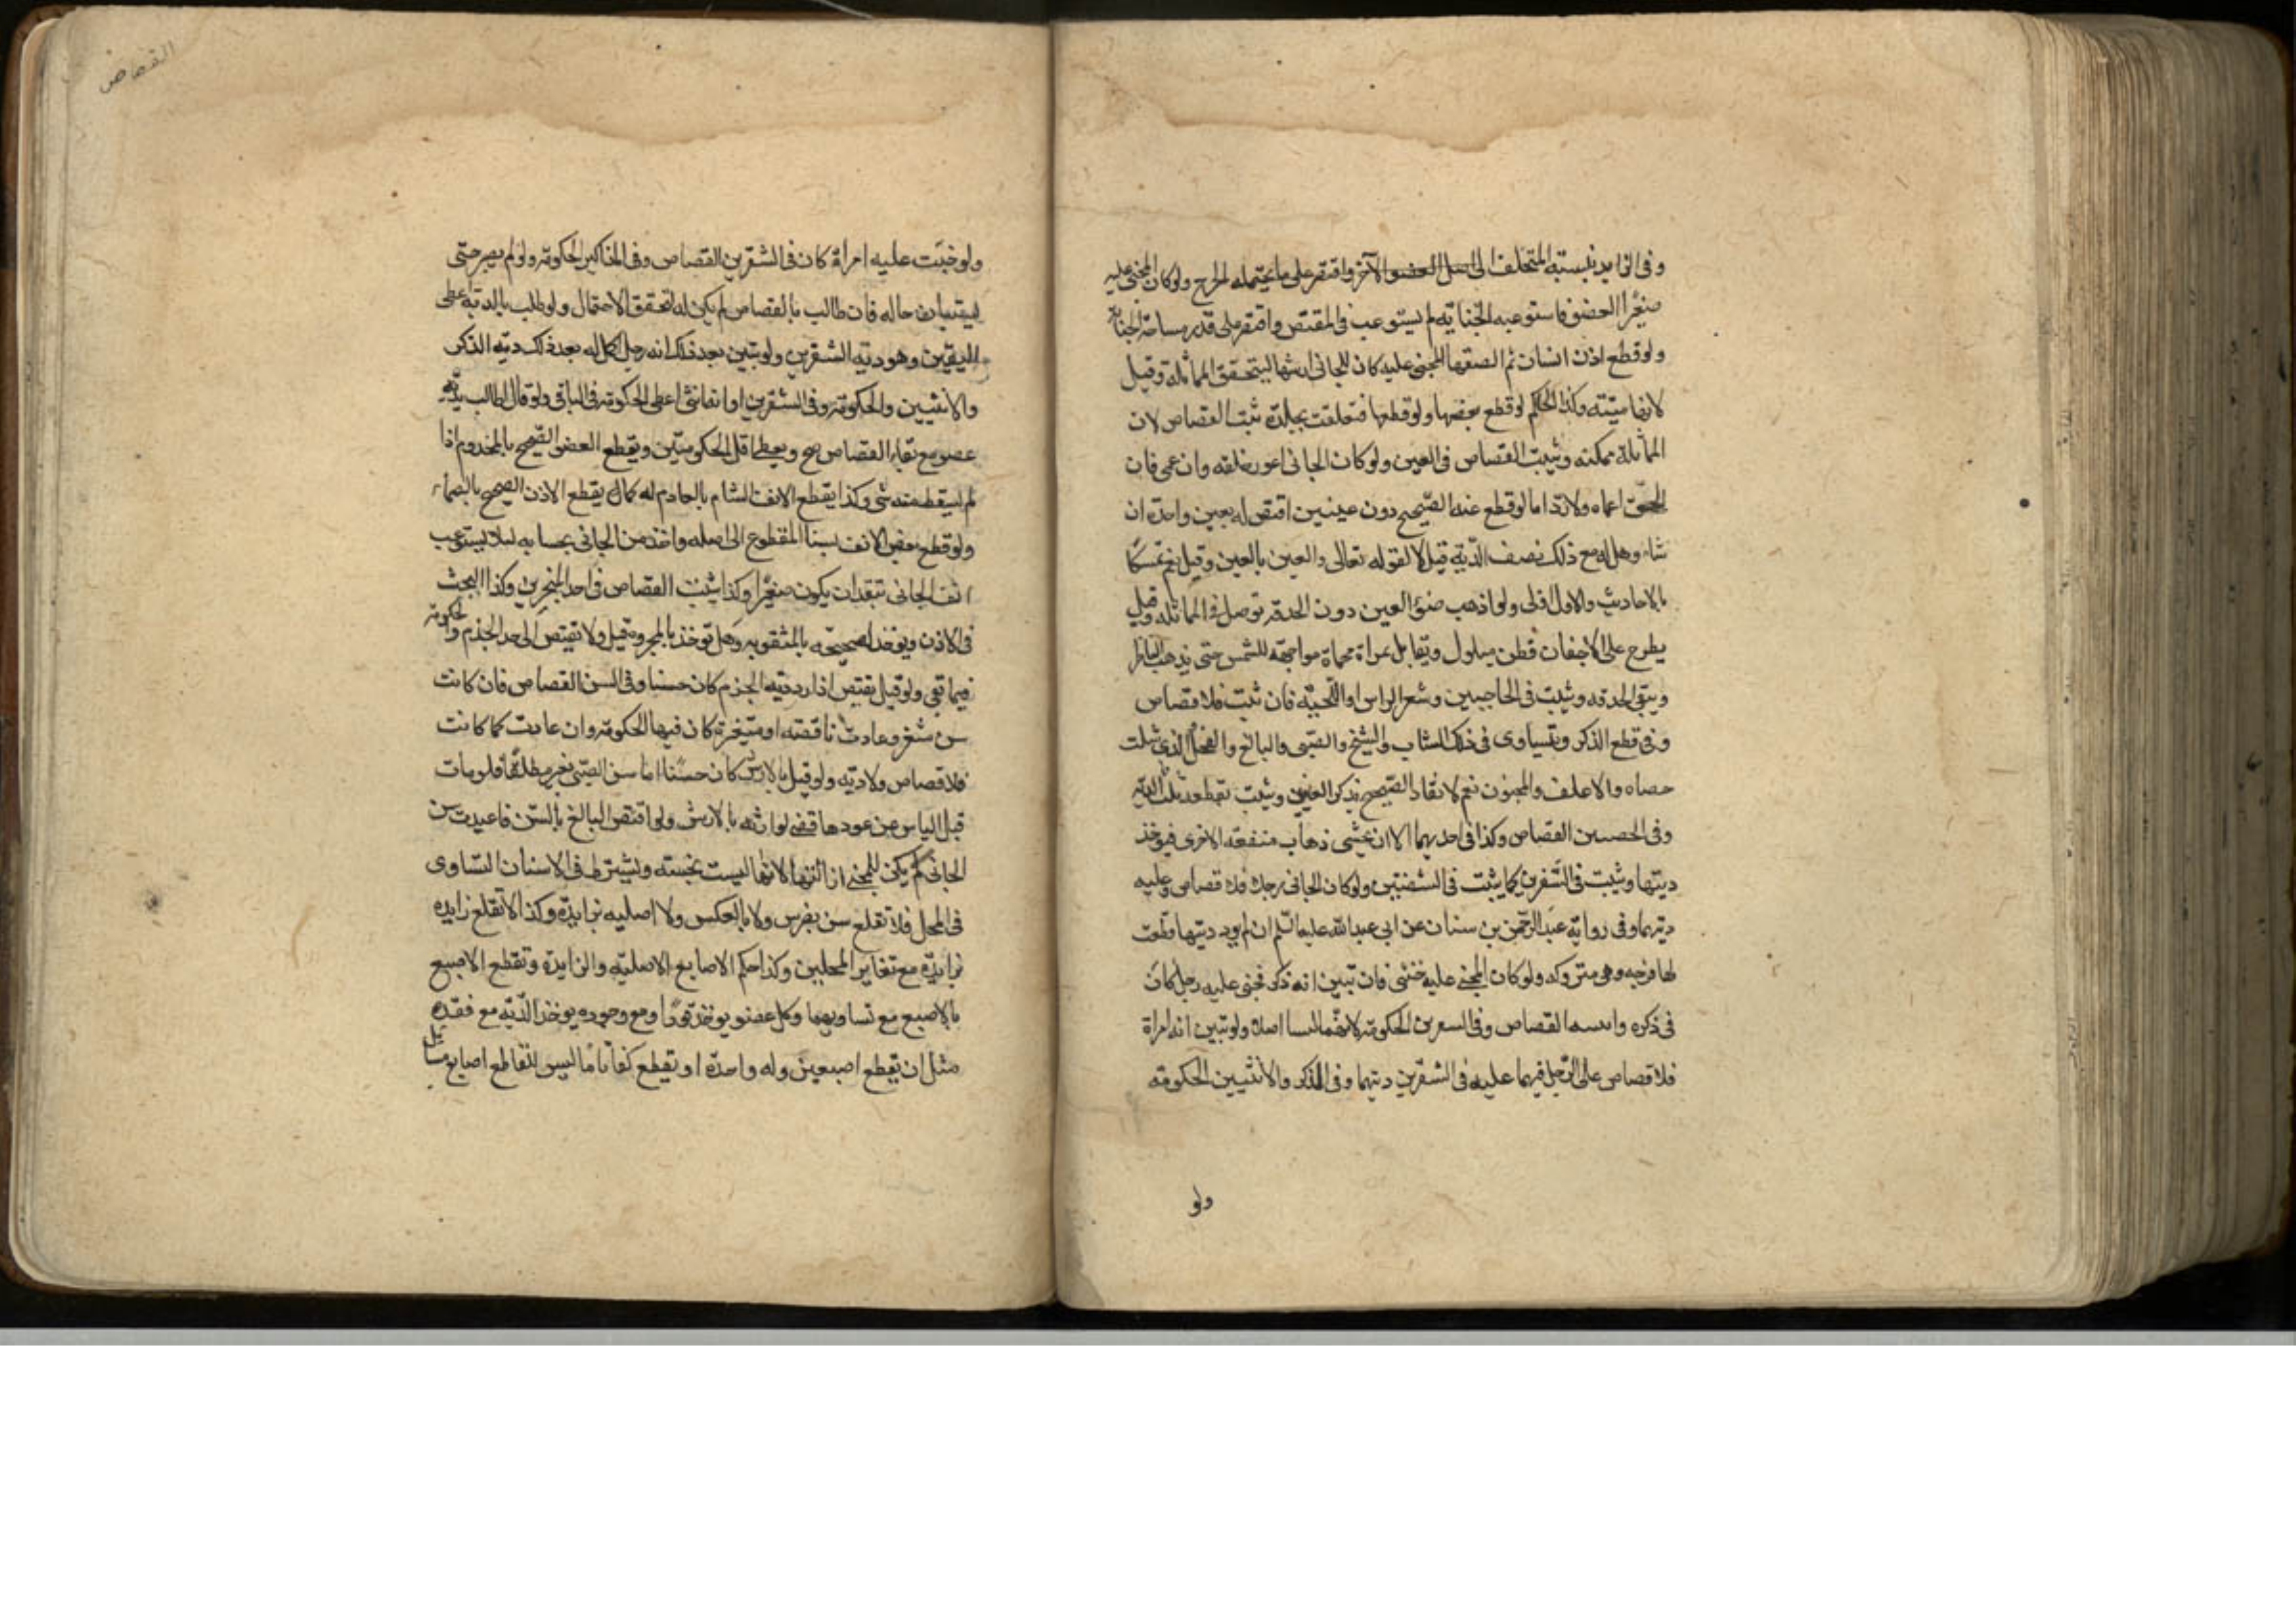 وفى الزايد بنسبته المتخلف الى اصل العضو الآخر واقتصر على ما يحتمله الجرح ولو كان المجنى عليه
صغيرا لعضو فاستوعبه الجناية لم يستوعب فى المقتص واقتصر على قدر مساحة الجناية
ولو قطع اذن انسان ثم الصقها المجنى عليه كان للجانى ازالتها ليتحقق المماثلة وقيل
لانها ميتته وكذا الحكم لو قطع بعضها ولو قطعها فتعلقت بجلدة ثبت القصاص لان
المماثلة ممكنة ويثبت القصاص فى العين ولو كان الجانى اعور خلقه وان عمى فان
الحق اعماه ولا رد اما لو قطع عنه الصحيح دون عينين اقتص له بعين واحدة ان
شاء وهل له مع ذلك نصف الدية قيل لا لقوله تعالى والعين بالعين وقيل نعم تمسكا
بالاحاديث والاول اولى ولو اذهب ضوء العين دون الحدقه توصل فى المماثله وقيل
يطرح على الاجفان قطن مبلول ويقابل بمراة محماة مواجهة للشمس حتى يذهب الناظر
ويبقى الحدقه ويثبت فى الحاجبين وشعر الراس واللحيه فان نبت فلا قصاص
وفى قطع الذكر ويتساوى فى ذلك الشاب والشيخ والصبى والبالغ والفحل الذى سلت
خصاه والاغلف والمجنون نعم لا يقاد الصحيح بذكر العنين ويثبت بقطعه ثلث الديه
وفى الخصيتين القصاص وكذا فى احديهما الا ان يخشى ذهاب منفعه الاخرى فيوخذ
ديتها ويثبت فى الشفرين كما يثبت فى الشفتين ولو كان الجانى رجلا فلا قصاص وعليه
ديتهما وفى رواية عبد الرحمن بن سنان عن ابى عبد الله عليه السلم ان لم يود ديتها قطعت
لها فرجه وهى متروكه ولو كان المجنى عليه خنثى فان تبين انه ذكر فجنى عليه رجل كان
فى ذكره وانثييه القصاص وفى الشفرين الحكومة لانهما ليسا اصلا ولو تبين انه امراة
فلا قصاص على الرجل فيهما وعليه فى الشفرين ديتهما وفى الذكر والانثيين الحكومة
ولو
القصاص
ولو جنت عليه امراة كان فى الشفرين القصاص وفى المذاكير الحكومة ولو لم يصبر حتى
يستبان حاله فان طالب بالقصاص لم يكن له لتحقق الاحتمال ولو طلب بالدية اعطى
اليقين وهو دية الشفرين ولو تبين بعد ذلك انه رجل اكمل له بعد ذلك دية الذكر
والانثيين والحكومة وفى الشفرين او انه انثى اعطى الحكومة فى الباقى ولو قال اطالب بدية
عضو مع بقاء القصاص صح ويعطى اقل الحكومتين ويقطع العضو الصحيح بالمجذوم اذا
لم يسقط منه شى وكذا يقطع الانف الشام بالعادم له كما يقطع الاذن الصحيح بالصماء
ولو قطع بعض الانف نسبنا المقطوع الى اصله واخذ من الجانى بحسابه لئلا يستوعب
انف الجانى بتقدير ان يكون صغيرا وكذا يثبت القصاص فى احد المنخرين وكذا البحث
فى الاذن ويوخذ الصحيحه بالمثقوبه وهل توخذ بالمجروحة قيل لا ويقتص الى حد الخرم والحكومة
فيما بقى ولو قيل يقتص اذا رد دية الخرم كان حسنا وفى السن القصاص فان كانت
سن مثغر وعادت ناقصه او متغيرة كان فيها الحكومة وان عادت كما كانت
فلا قصاص ولا دية ولو قيل بالارش كان حسنا اما سن الصبى فلو مات
قبل الياس من عودها قضى لوارثه بالارش ولو اقتص البالغ بالسن فاعيدت سن
الجانى لم يكن للمجنى ازالتها لانها ليست بجنسه ويشترط فى الاسنان التساوى
فى المحل فلا تقلع سن بضرس ولا بالعكس ولا اصليه بزايدة وكذا لا تقلع زايده
بزايدة مع تغاير المحلين وكذا حكم الاصابع الاصلية والزايدة وتقطع الاصبع
بالاصبع مع تساويهما وكل عضو يوخذ قودا مع وجوده يوخذ الدية مع فقده
مثل ان يقطع اصبعين وله واحدة او يقطع كفا تاما ليس للقاطع اصابع مسائل